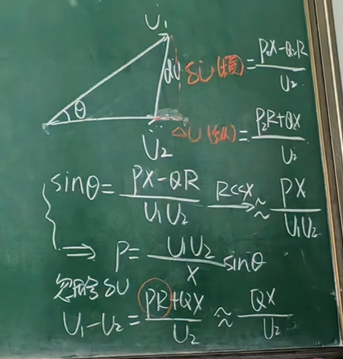 U̇₁
θ
dU̇
δU̇(横)=(P₂X-Q₂R)/U₂
U̇₂
ΔU̇(纵)=(P₂R+QX)/U₂
sinθ=(PX-QR)/(U₁U₂) R<<X → ≈ PX/(U₁U₂)
⇒ P=(U₁U₂/X) sinθ
忽略δU
U₁-U₂=(PR+QX)/U₂ ≈ QX/U₂